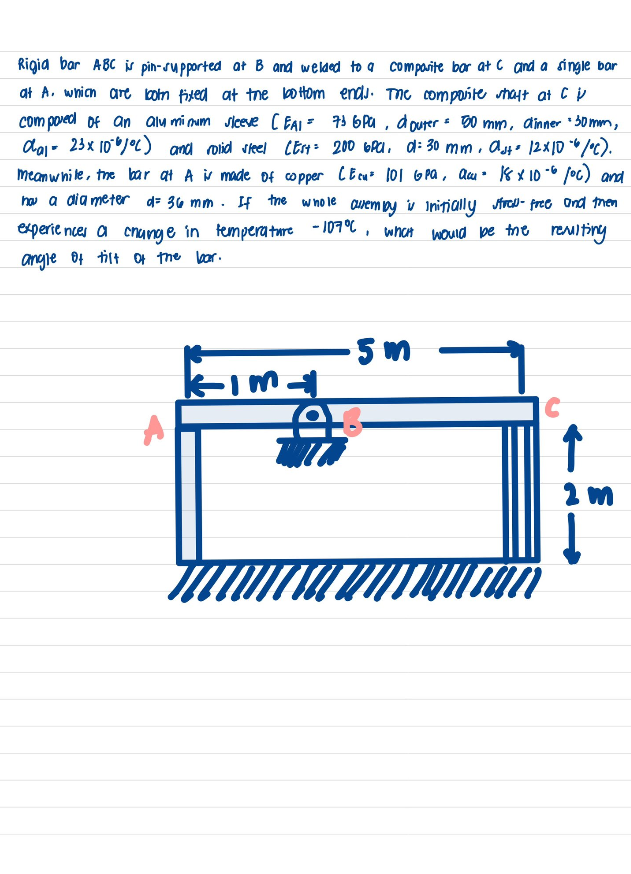 Rigid bar ABC is pin-supported at B and welded to a composite bar at C and a single bar
at A, which are both fixed at the bottom ends. The composite shaft at C is
composed of an aluminum sleeve (EAl = 73 GPa, douter = 50 mm, dinner = 30mm,
αal = 23 x 10⁻⁶/°C) and solid steel (Est = 200 GPa, d = 30 mm, αst = 12x10⁻⁶/°C).
Meanwhile, the bar at A is made of copper (Ecu = 101 GPa, αcu = 18 x 10⁻⁶/°C) and
has a diameter d = 36 mm. If the whole assembly is initially stress-free and then
experiences a change in temperature -107°C, what would be the resulting
angle of tilt of the bar.
5 m
1 m
A
B
C
2 m